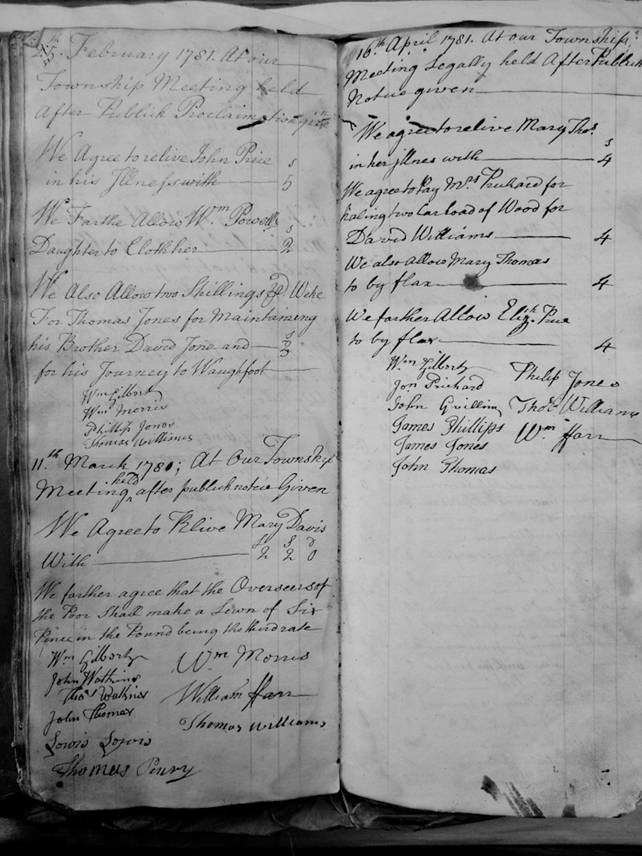 25th February 1781. At our
Township Meeting held
After Publick Proclamation given
We Agree to relive John Price s
in his Illness with 5
We Farthe Allow Wm Powell s
Daughter to Clothher 2
We Also Allow two Shillings Weke
For Thomas Jones for Maintaineng
his Brother David Jone and
for his Journey to Waughfoot
Wm Gilbert
Wm Morris
Phillip Jones
Thomas Williams
11th March 1781; At Our Township
Meeting held after publick notice Given
We Agree to Relive Mary Davis
£ s d
With 2 2 0
We farther agree that the Overseers of
the Poor Shall make a Lewn of Six
Pince in the Pound being the third rate
Wm Gilbert Wm Morris
John Watkins
Thos Watkins William Harr
John Thomas Thomas Williams
Lewis Lewis
Thomas Penry
16th April 1781. At our Township
Meeting Legally held After Publick
Notice given
We agree to relive Mary Thos s
in her Illnes with 4
We agree to Pay Mrs Prichard for
haling two Car Load of Wood for
David Williams 4
We also allow Mary Thomas
to by flax 4
We farther Allow Elizh Price
to by flax 4
Wm Gilbert Philip Jones
Jon Prichard
John Guilliam Thos Williams
James Phillips Wm Harr
James Jones
John Thomas